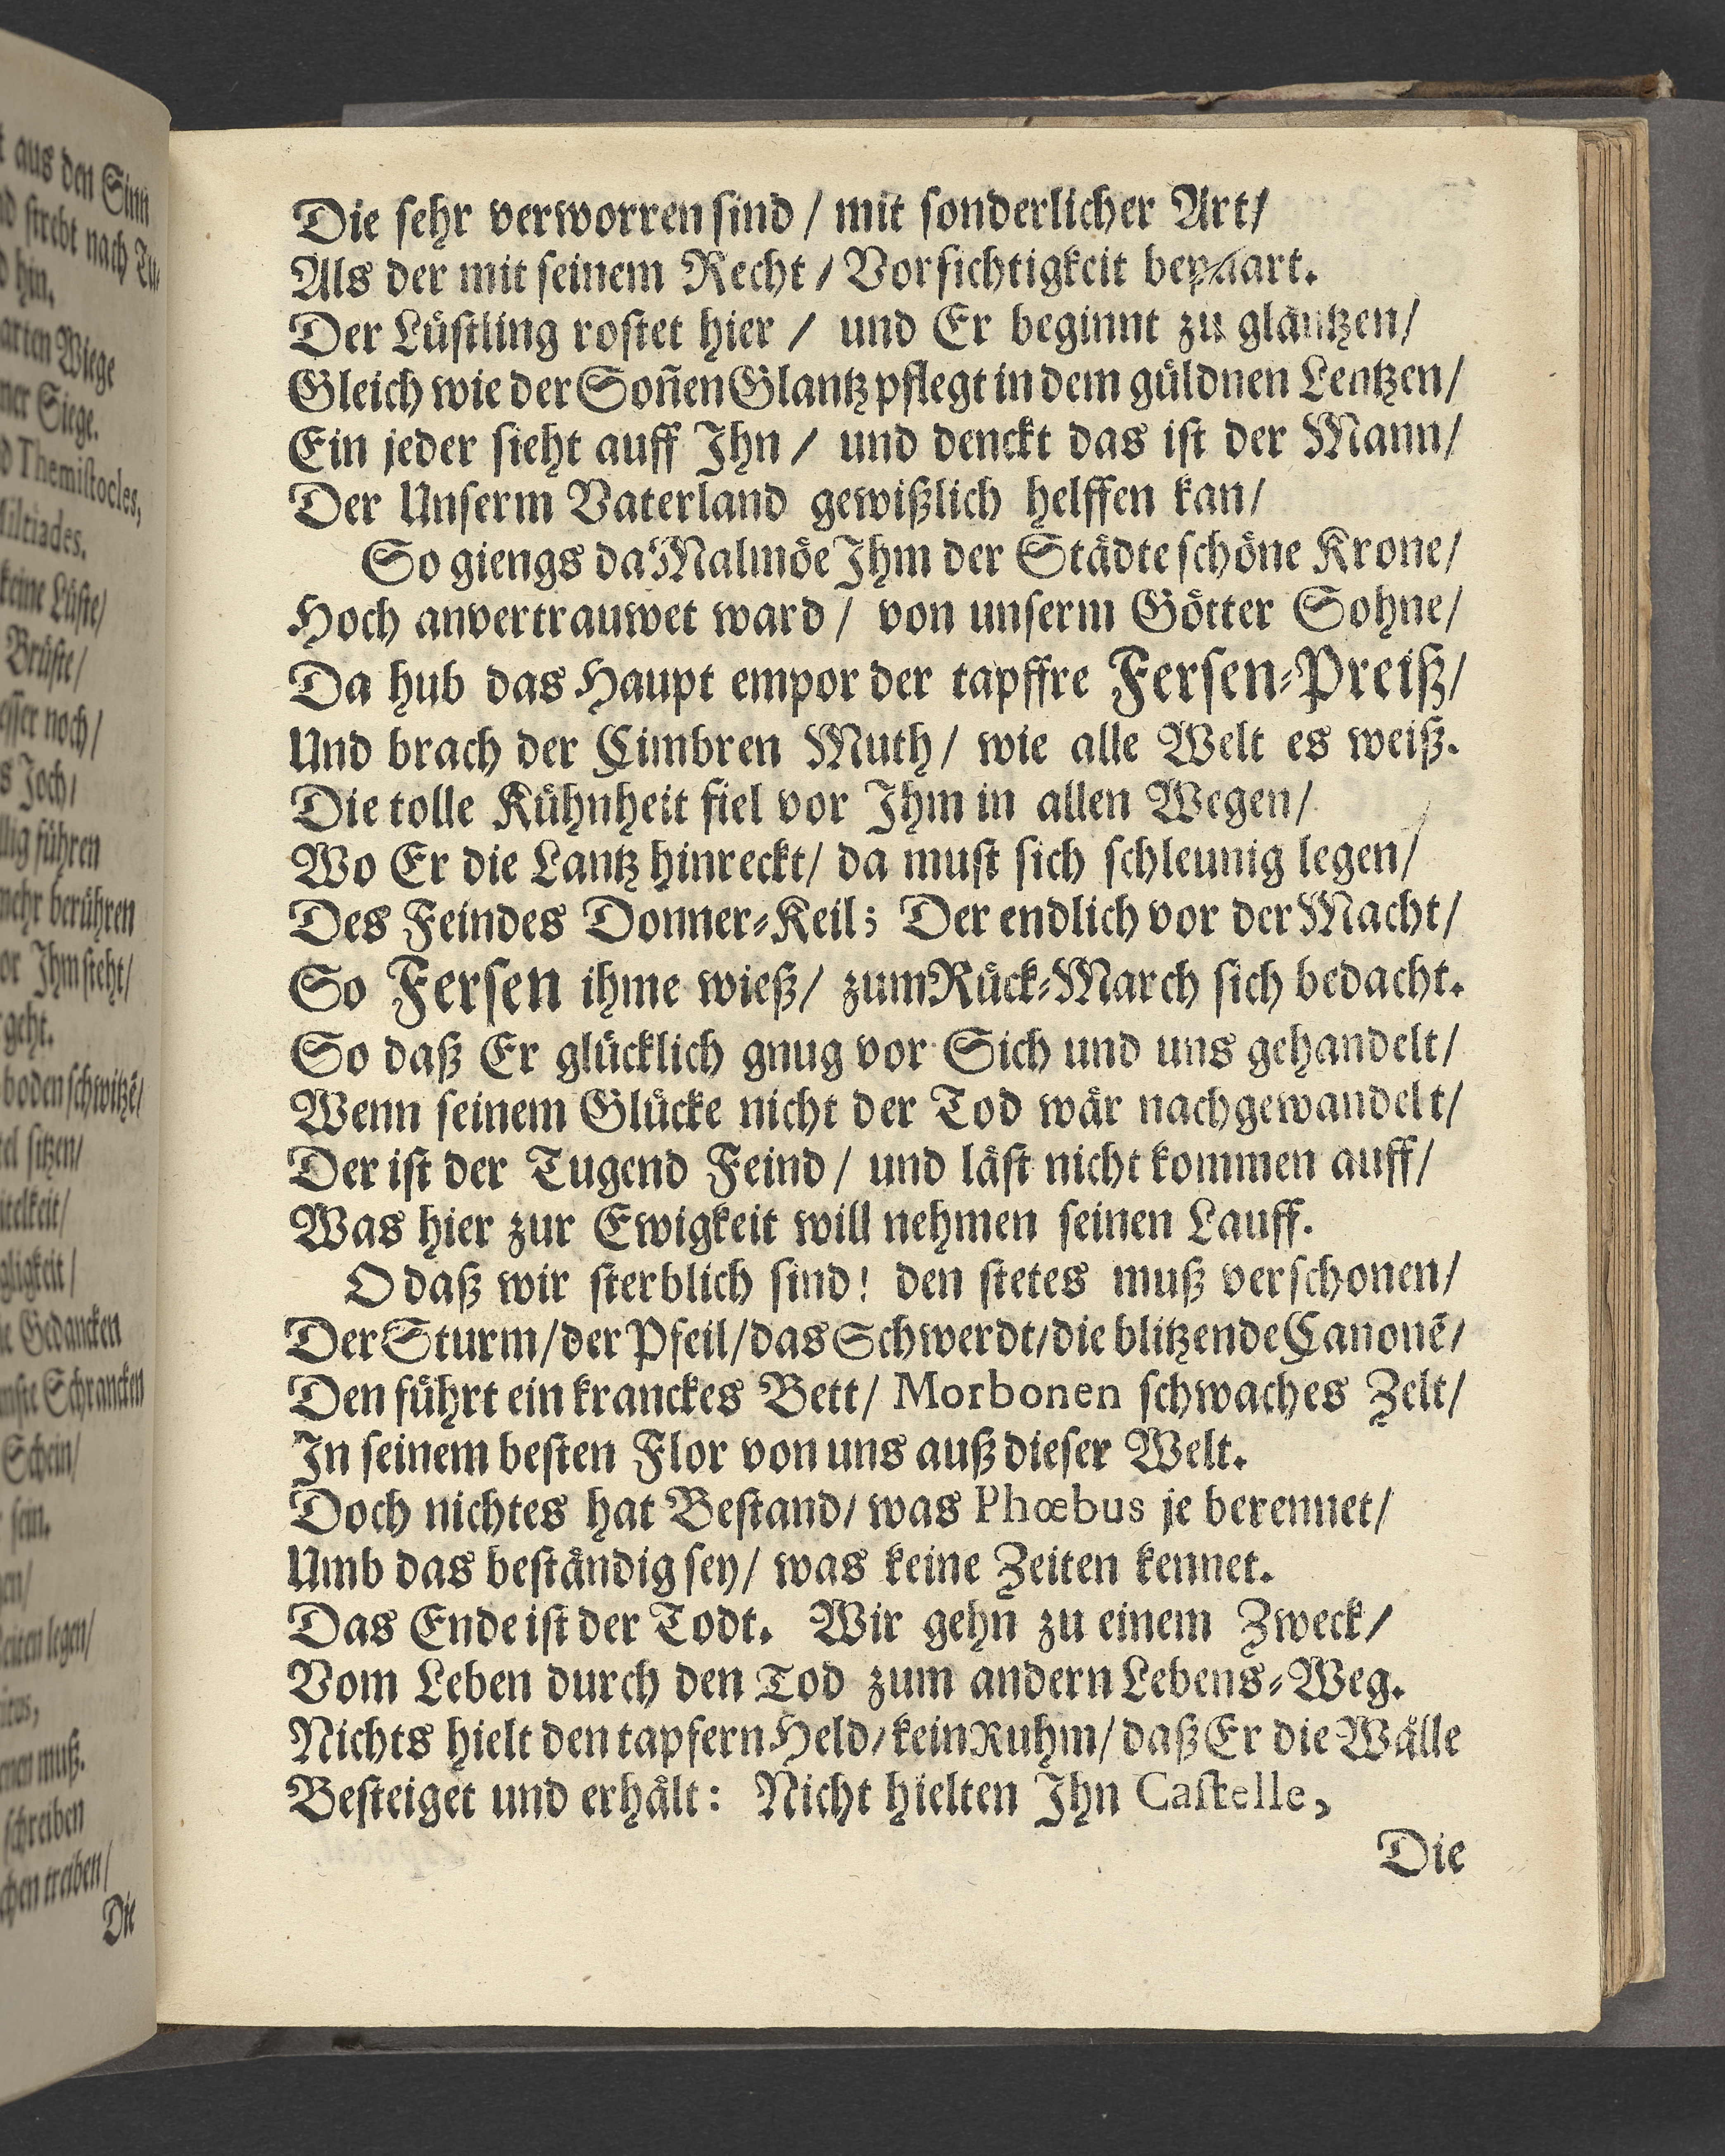 Die ſehr verworren ſind / mit ſonderlicher Art/
Als der mit ſeinem Recht / Vorſichtigkeit bepaart.
Der Lüſtling roſtet hier / und Er beginnt zu gläntzen/
Gleich wie der Soñen Glantz pflegt in dem güldnen Lentzen/
Ein jeder ſieht auff Ihn / und denckt das iſt der Mann/
Der Unſerm Vaterland gewißlich helffen kan/
So giengs da Malmöe Ihm der Städte ſchöne Krone/
Hoch anvertrauwet ward / von unſerm Götter Sohne/
Da hub das Haupt empor der tapffre Ferſen-Preiß/
Und brach der Cimbren Muth / wie alle Welt es weiß.
Die tolle Kühnheit fiel vor Ihm in allen Wegen/
Wo Er die Lantz hinreckt / da muſt ſich ſchleunig legen/
Des Feindes Donner-Keil; Der endlich vor der Macht/
So Ferſen ihme wieß / zum Rück-March ſich bedacht.
So daß Er glücklich gnug vor Sich und uns gehandelt/
Wenn ſeinem Glücke nicht der Tod wär nachgewandelt/
Der iſt der Tugend Feind / und läſt nicht kommen auff/
Was hier zur Ewigkeit will nehmen ſeinen Lauff.
O daß wir ſterblich ſind! den ſtetes muß verſchonen/
Der Sturm / der Pfeil / das Schwerdt / die blitzende Canonē/
Den führt ein kranckes Bett / Morbonen ſchwaches Zelt/
In ſeinem beſten Flor von uns auß dieſer Welt.
Doch nichtes hat Beſtand / was Phœbus je berennet/
Umb das beſtändig ſey / was keine Zeiten kennet.
Das Ende iſt der Todt. Wir gehn zu einem Zweck/
Vom Leben durch den Tod zum andern Lebens-Weg.
Nichts hielt den tapfern Held / kein Ruhm / daß Er die Wälle
Beſteiget und erhält: Nicht hielten Ihn Caſtelle,
Die
aus den Sinn
ſtrebt nach
hin.
Wiege
Siege.
Themiſtocles,
keine Lüſte/
Brüſte/
noch/
Joch/
führen
mehr berühren
Ihm ſteht/
geht.
boden ſchwitzē/
ſitzen/
Gedancken
Schrancken
Schein/
ſein.
legen/
muß.
ſchreiben
treiben/
Die